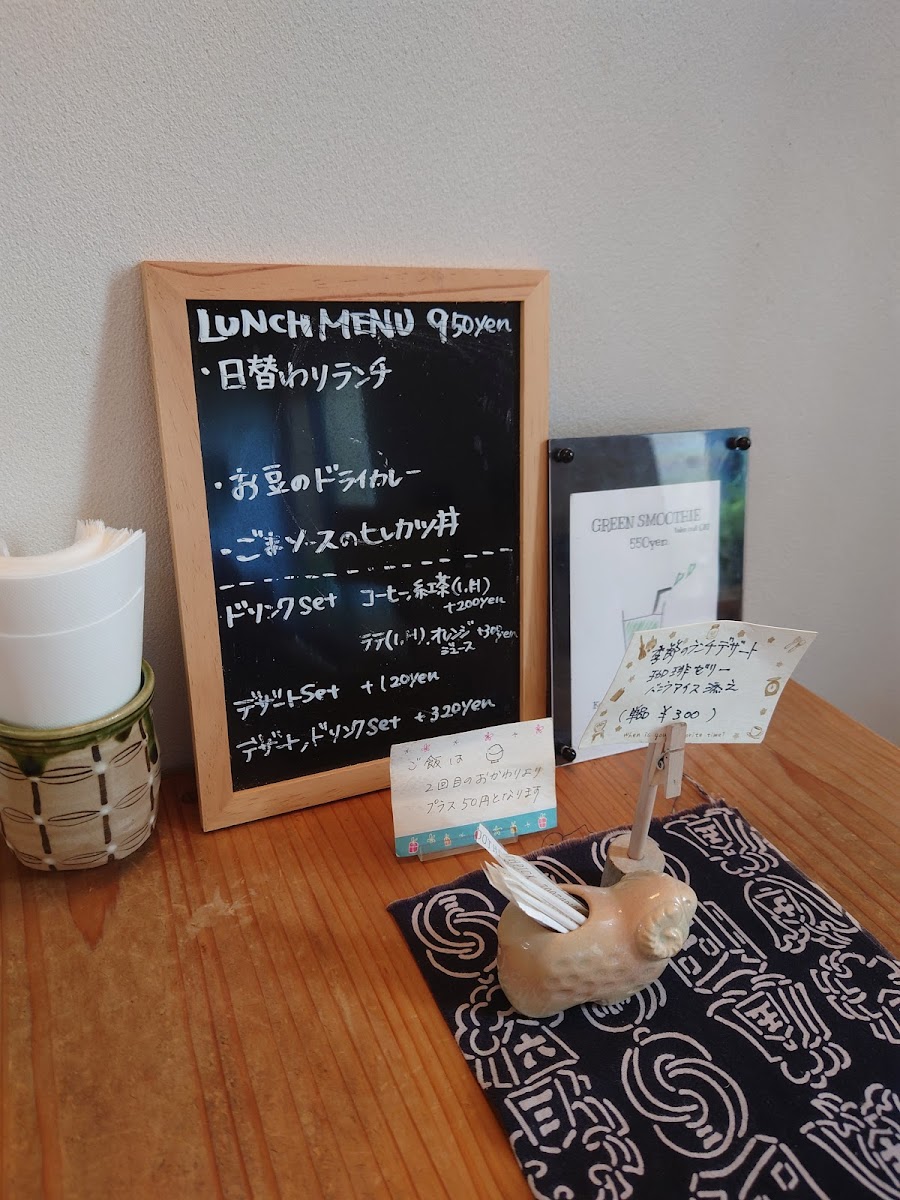 LUNCH MENU 950yen
・日替わりランチ
・お豆のドライカレー
・ごまソースのヒレカツ丼
ドリンクset コーヒー,紅茶(I,H)
+200yen
ラテ(I,H),オレンジ +300yen
ジュース
デザートSet +120yen
デザート,ドリンクSet +320yen
GREEN SMOOTHIE
550yen
季節のランチデザート
珈琲ゼリー
バニラアイス添え
(単品 ¥300)
ご飯は
2回目のおかわりより
プラス50円となります